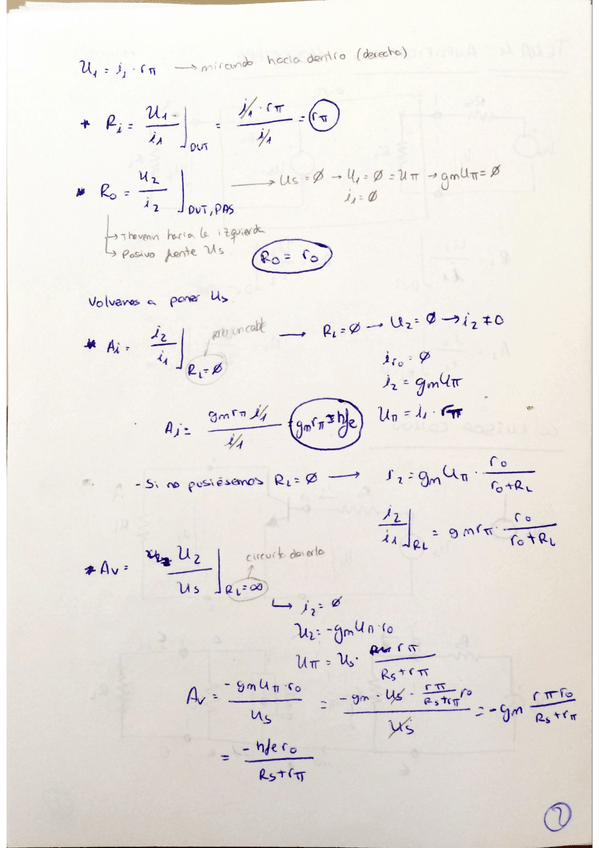 U₁ = i₁ · rπ → mirando hacia dentro (derecha)
* Ri = U₁/i₁ |DUT = i₁ · rπ / i₁ = rπ
* Ro = U₂/i₂ |DUT, PAS → Us = ∅ → U₁ = ∅ = Uπ → gmUπ = ∅
i₁ = ∅
→ Thevenin hacia la izquierda
→ Pasivo fuente Us
Ro = ro
Volvemos a poner Us
* Ai = i₂/i₁ |RL = ∅ → RL = ∅ → U₂ = ∅ → i₂ ≠ 0
iro = ∅
i₂ = gmUπ
Uπ = i₁ · rπ
Ai = gm rπ i₁ / i₁ = gm rπ = hfe
- Si no pusiésemos RL = ∅ → i₂ = gm Uπ · ro/(ro+RL)
i₂/i₁ |RL = gm rπ · ro/(ro+RL)
* Av = U₂/Us |RL = ∞ circuito abierto
→ i₂ = ∅
U₂ = -gmUπ · ro
Uπ = Us · rπ/(Rs+rπ)
Av = -gmUπ · ro / Us = -gm · Us · rπ/(Rs+rπ) ro / Us = -gm rπ ro/(Rs+rπ)
= -hfe ro/(Rs+rπ)
2